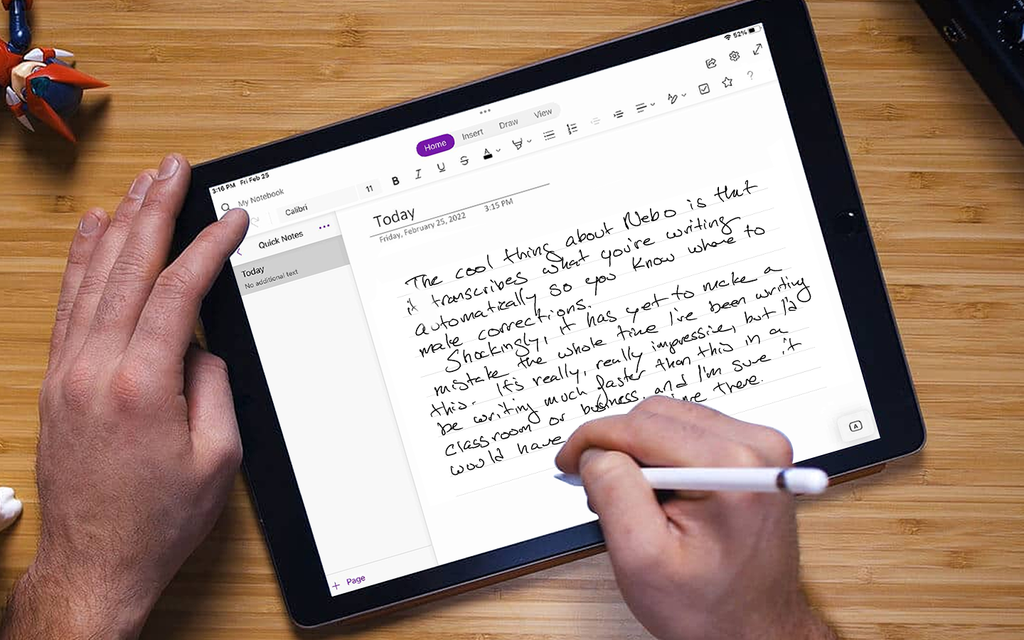 3:16 PM Fri Feb 25
52%
My Notebook
Home Insert Draw View
Calibri 11 B I U S A
?
Quick Notes
Today
No additional text
+ Page
Today
Friday, February 25, 2022 3:15 PM
The cool thing about Nebo is that
it transcribes what you're writing
automatically so you know where to
make corrections.
Shockingly, it has yet to make a
mistake the whole time I've been writing
this. It's really, really impressive, but I'd
be writing much faster than this in a
classroom or business, and I'm sure it
would have there.
A